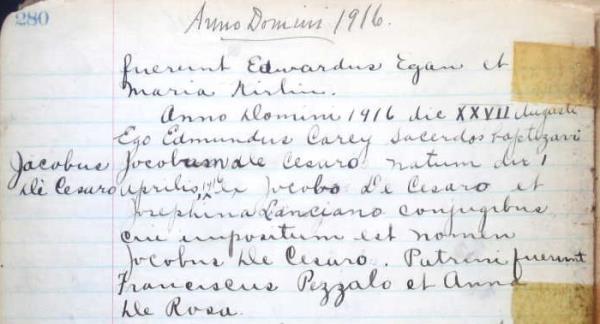 280
Anno Domini 1916.
fuerunt Edwardus Egan et
Maria
Anno Domini 1916 die XXVII Augusti
Ego Edmundus Carey Sacerdos baptizavi
Jacobus Jocobum de Cesaro natum die 1
Di Cesaro aprilis, 1916 ex Jocobo De Cesaro et
Josephina Lanciano conjugibus
cui impositum est nomen
Jocobus De Cesaro. Patrini fuerunt
Franciscus Pezzalo et Anna
De Rosa.